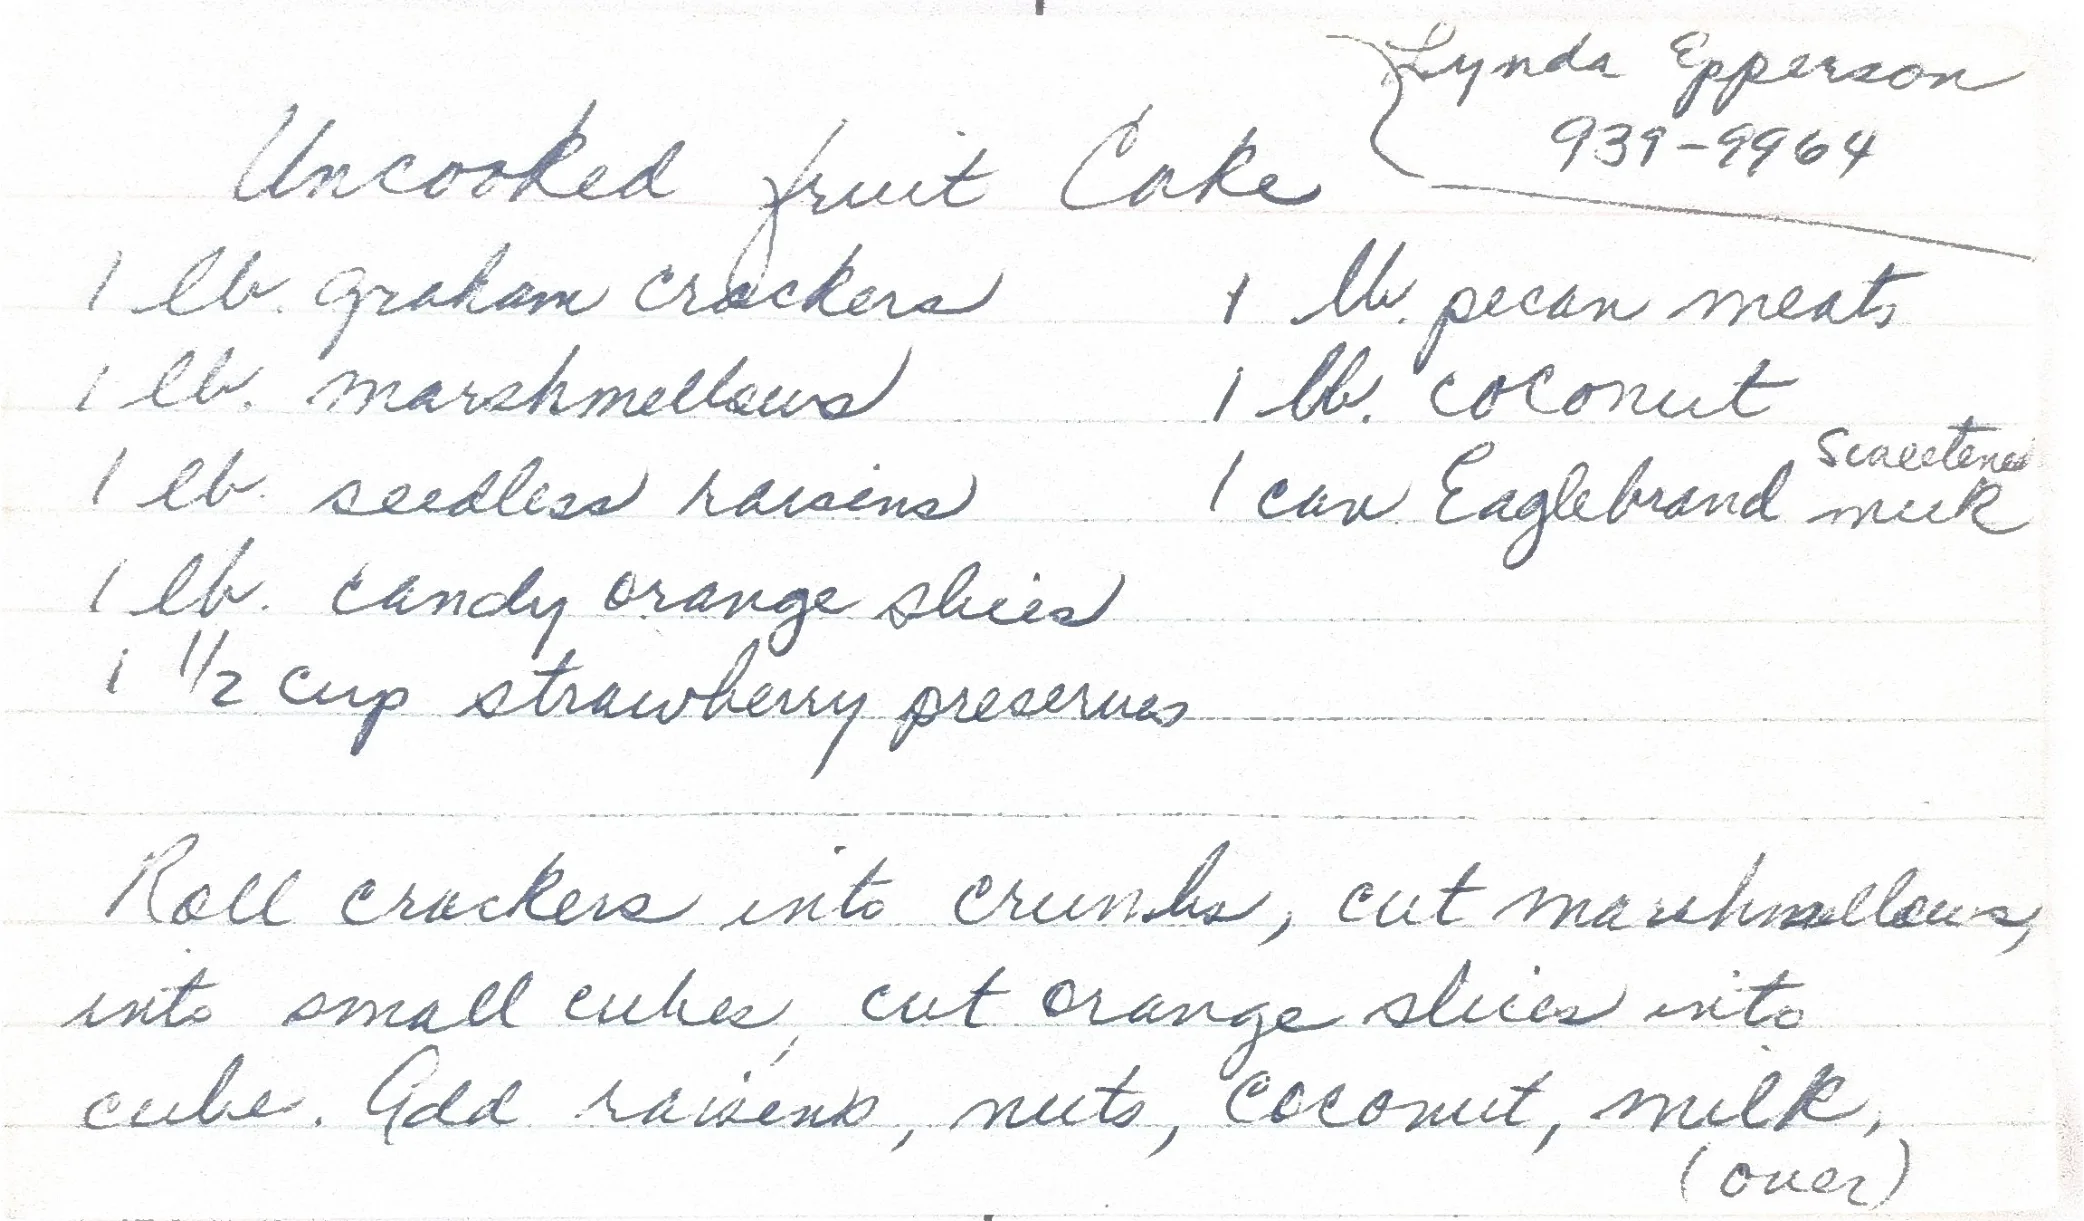 Lynda Epperson
939-9964
Uncooked fruit Cake
1 lb. graham crackers
1 lb. marshmellows
1 lb. seedless raisins
1 lb. candy orange slices
1 1/2 cup strawberry preserves
1 lb. pecan meats
1 lb. coconut
1 can Eaglebrand sweetened milk
Roll crackers into crumbs, cut marshmellows,
into small cubes, cut orange slices into
cube. Add raisens, nuts, coconut, milk,
(over)